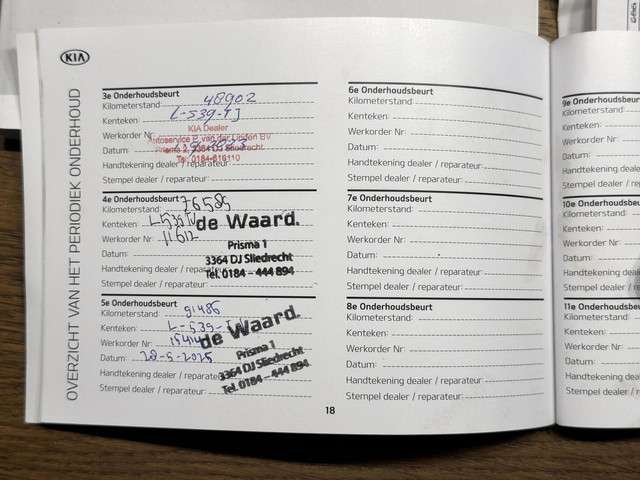 KIA
OVERZICHT VAN HET PERIODIEK ONDERHOUD
3e Onderhoudsbeurt
Kilometerstand: 48902
Kenteken: L-539-TJ
Werkorder Nr:
KIA Dealer
Autoservice P. van der Linden BV
Datum:
Prisma 2, 3364 DJ Sliedrecht
Tel: 0184-616110
Handtekening dealer / reparateur:
Stempel dealer / reparateur:
4e Onderhoudsbeurt
Kilometerstand: 76585
Kenteken:
Werkorder Nr: 11612
Datum:
Handtekening dealer / reparateur:
Stempel dealer / reparateur:
de Waard.
Prisma 1
3364 DJ Sliedrecht
Tel. 0184 - 444 894
5e Onderhoudsbeurt
Kilometerstand: 91486
Kenteken: L-539-
Werkorder Nr:
Datum: 20-5-2025
Handtekening dealer / reparateur:
Stempel dealer / reparateur:
de Waard.
Prisma 1
3364 DJ Sliedrecht
Tel. 0184 - 444 894
6e Onderhoudsbeurt
Kilometerstand:
Kenteken:
Werkorder Nr:
Datum:
Handtekening dealer / reparateur:
Stempel dealer / reparateur:
7e Onderhoudsbeurt
Kilometerstand:
Kenteken:
Werkorder Nr:
Datum:
Handtekening dealer / reparateur:
Stempel dealer / reparateur:
8e Onderhoudsbeurt
Kilometerstand:
Kenteken:
Werkorder Nr:
Datum:
Handtekening dealer / reparateur:
Stempel dealer / reparateur:
18
9e Onderhoudsbeur
Kilometerstand:
Kenteken:
Werkorder Nr:
Datum:
Handtekening deale
Stempel dealer / re
10e Onderhoudsbeu
Kilometerstand:
Kenteken:
Werkorder Nr:
Datum:
Handtekening deal
Stempel dealer / re
11e Onderhoudsbeu
Kilometerstand:
Kenteken:
Werkorder Nr:
Datum:
Handtekening dea
Stempel dealer / r